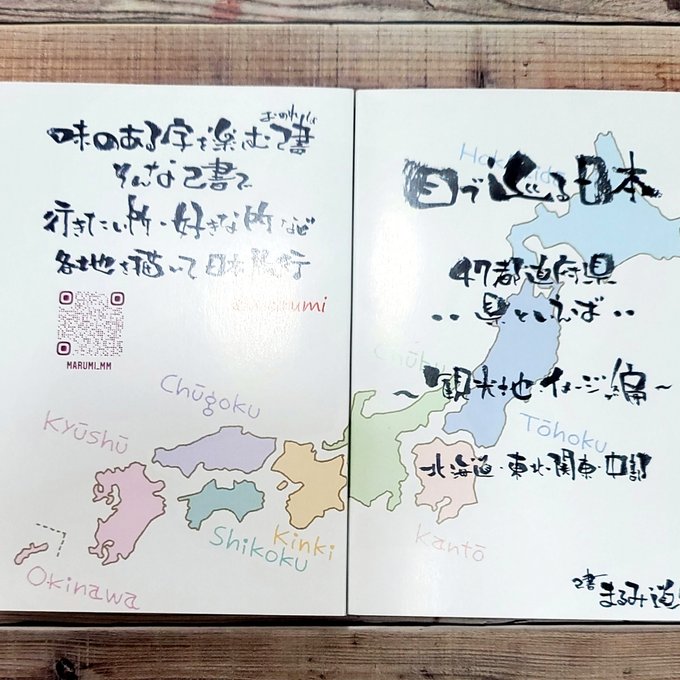 おのれしょ
味のある字を楽しむ己書
そんな己書で
行きたい所・好きな所など
各地を描いて日本旅行
marumi
MARUMI_MM
Chūgoku
Kyūshū
Shikoku
Kinki
Okinawa
Hokkaido
目で巡る日本
47都道府県
‥県といえば‥
Chūbu
～観光地・イメージ編～
Tōhoku
北海道・東北・関東・中部
Kantō
己書 まるみ道